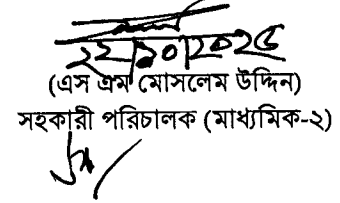 ২২/১০/২০২৫
(এস এম মোসলেম উদ্দিন)
সহকারী পরিচালক (মাধ্যমিক-২)